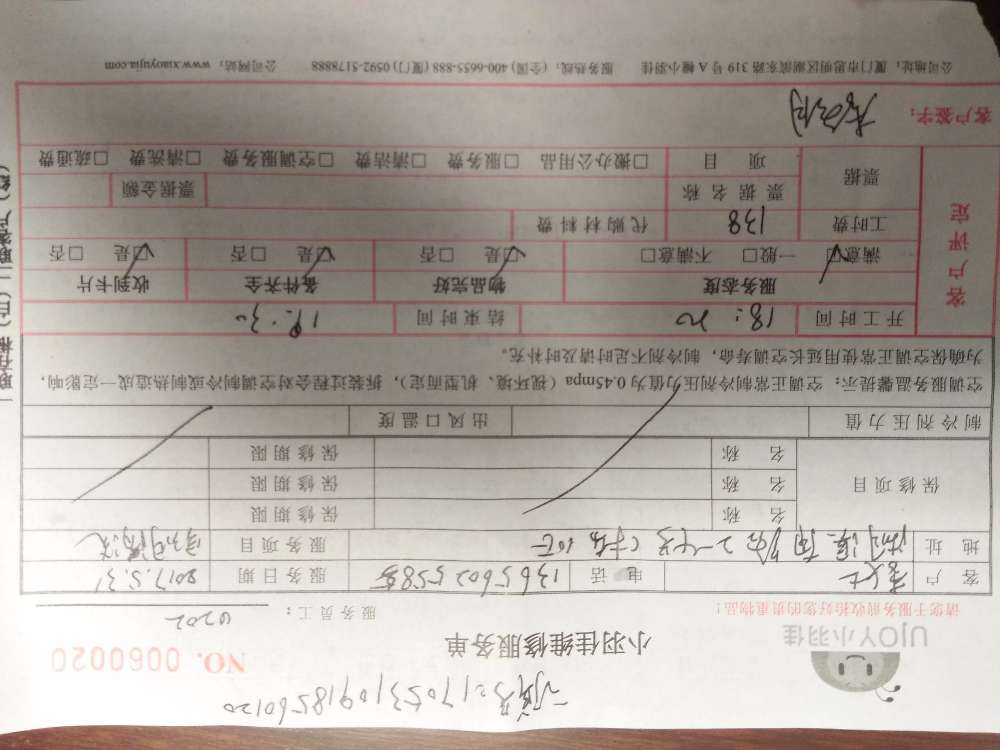 订单号:2170531091856 0120
UJOY小羽佳
小羽佳维修服务单
NO. 0060020
请您于服务前收拾好您的贵重物品!
服务员工: 0202
客户 李女士 电话 服务日期 2017.5.31
地址 服务项目
保修项目 名称 保修期限
名称 保修期限
名称 保修期限
制冷剂压力值 出风口温度
空调服务温馨提示:空调正常制冷剂压力值为0.45mpa(视环境、机型而定),拆装过程会对空调制冷或制热造成一定影响,
为确保空调正常使用延长空调寿命,制冷剂不足时请及时补充。
客户评定
开工时间 18:20 结束时间 19:30
服务态度 物品完好 备件齐全 收到卡片
满意☑ 一般□ 不满意□ ☑是 □否 ☑是 □否 ☑是 □否
工时费 138 代购材料费
票据 票据名称 票据金额
项目 □搬办公用品 □服务费 □清洁费 □空调服务费 □清洗费 □疏通费
客户签字:
公司地址:厦门市思明区湖滨东路319号A幢小羽佳 服务热线:(全国)400-6655-888 (厦门)0592-5178888 公司网站:www.xiaoyujia.com